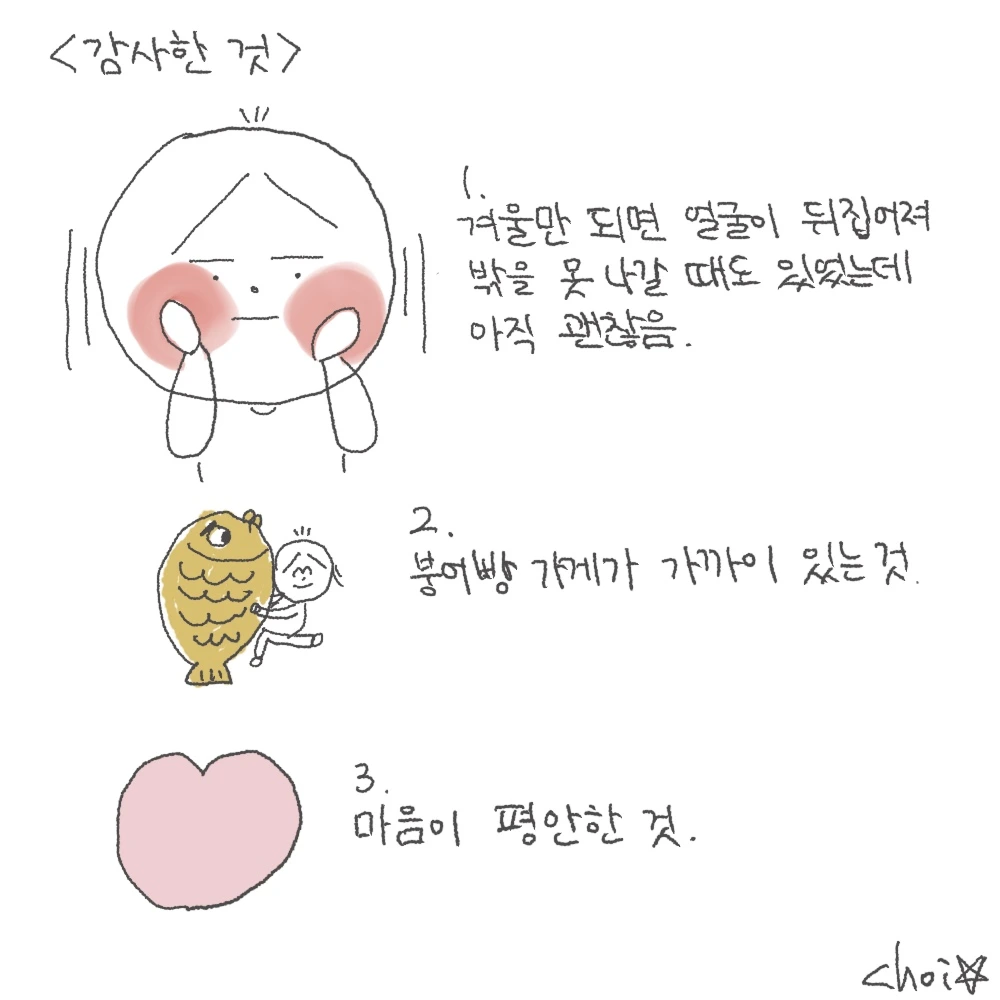 <감사한 것>
1.
겨울만 되면 얼굴이 뒤집어져
밖을 못 나갈 때도 있었는데
아직 괜찮음.
2.
붕어빵 가게가 가까이 있는 것.
3.
마음이 평안한 것.
choi☆